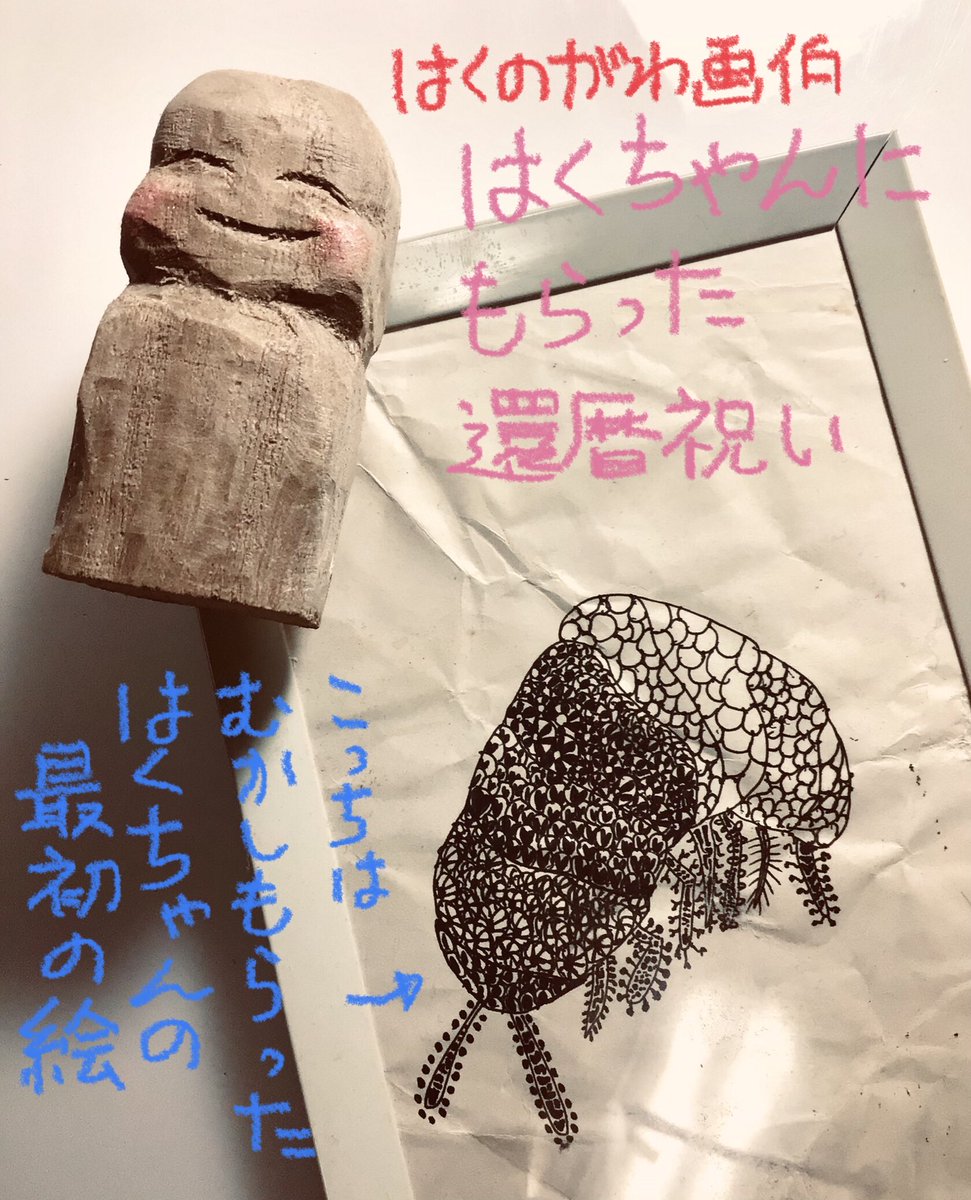 はくのがわ画伯
はくちゃんに
もらった
還暦祝い
こっちは→
むかしもらった
はくちゃんの
最初の絵